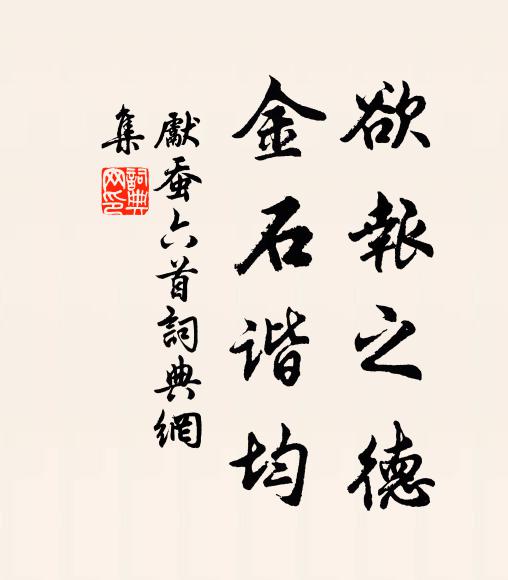 欲報之德
金石谐均
獻蚕六首詞典網
集
詞典
网印